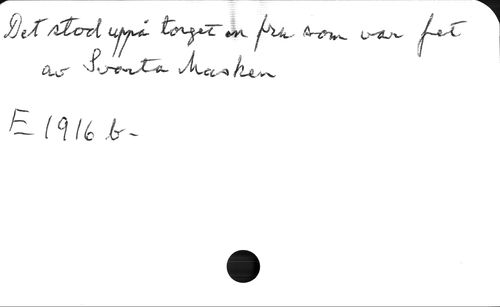 Det stod uppå torget en fru som var fet
av Svarta Masken
E 1916 b-